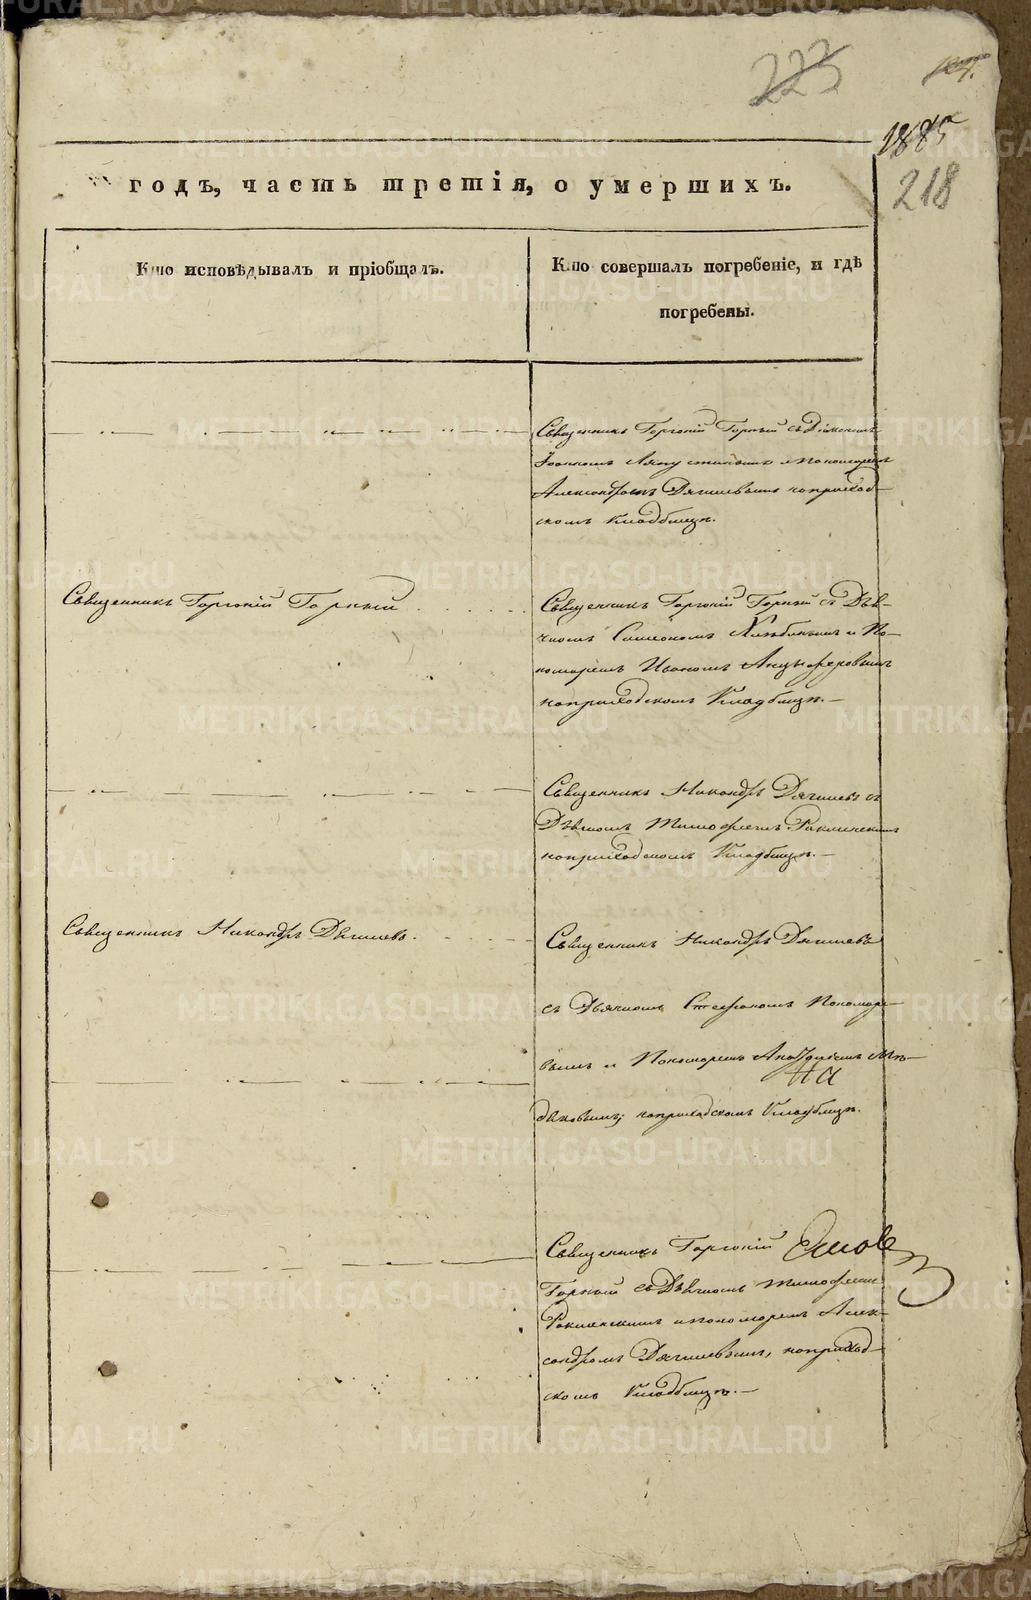 223
1885
218
годъ, часть третія, о умершихъ.
Кто исповѣдывалъ и пріобщалъ.
Кто совершалъ погребеніе, и гдѣ
погребены.
Священникъ Горгоній Горный съ Діакономъ
Іоанномъ и пономаремъ
Александромъ Дягилевымъ наприход-
скомъ Кладбищѣ.
Священникъ Горгоній Горный
Священникъ Горгоній Горный съ Дьяч-
комъ Симеономъ Хлѣбинымъ и По-
номаремъ Иваномъ Анцыферовымъ
наприходскомъ Кладбищѣ.—
Священникъ Никандръ Дягилевъ съ
Дьячкомъ Тимофеемъ
наприходскомъ Кладбищѣ.—
Священникъ Никандръ Дягилевъ.
Священникъ Никандръ Дягилевъ
съ Дьячкомъ Стефаномъ Пономаре-
вымъ и Пономаремъ
наприходскомъ Кладбищѣ.
Священникъ Горгоній
Горный съ Дьячкомъ Тимофеемъ
и пономаремъ Алек-
сандромъ Дягилевымъ, наприход-
скомъ Кладбищѣ.—
METRIKI.GASO-URAL.RU